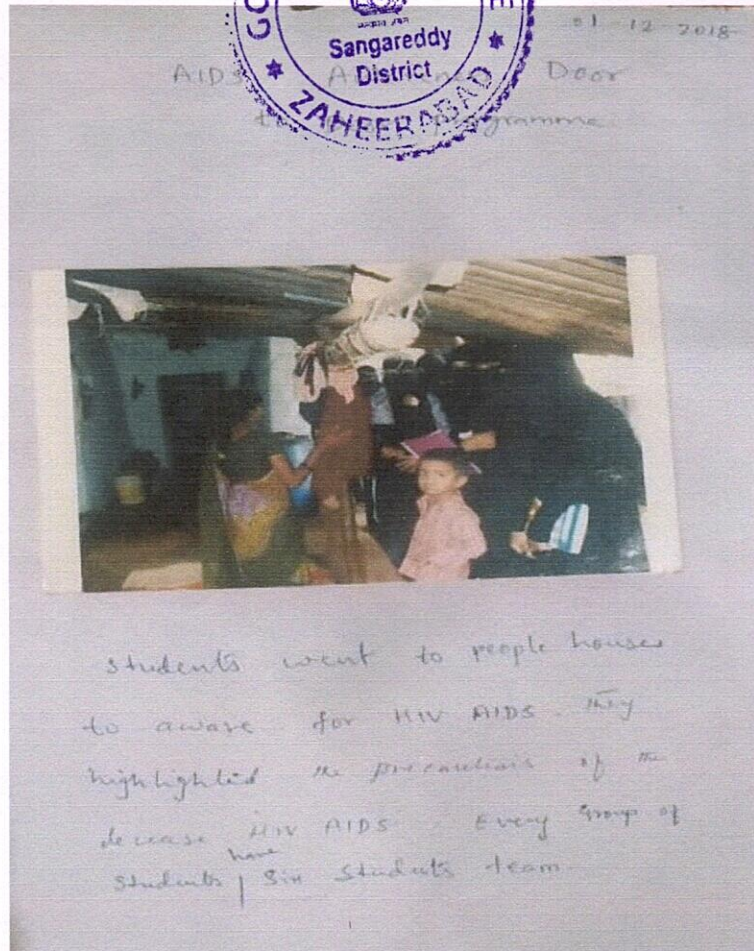 01-12-2018
Sangareddy
District
ZAHEERABAD
AIDS Door
programme
students went to people houses
to aware for HIV AIDS. They
highlighted the precautions of the
decease HIV AIDS. Every Group of
have
students / Six students team.